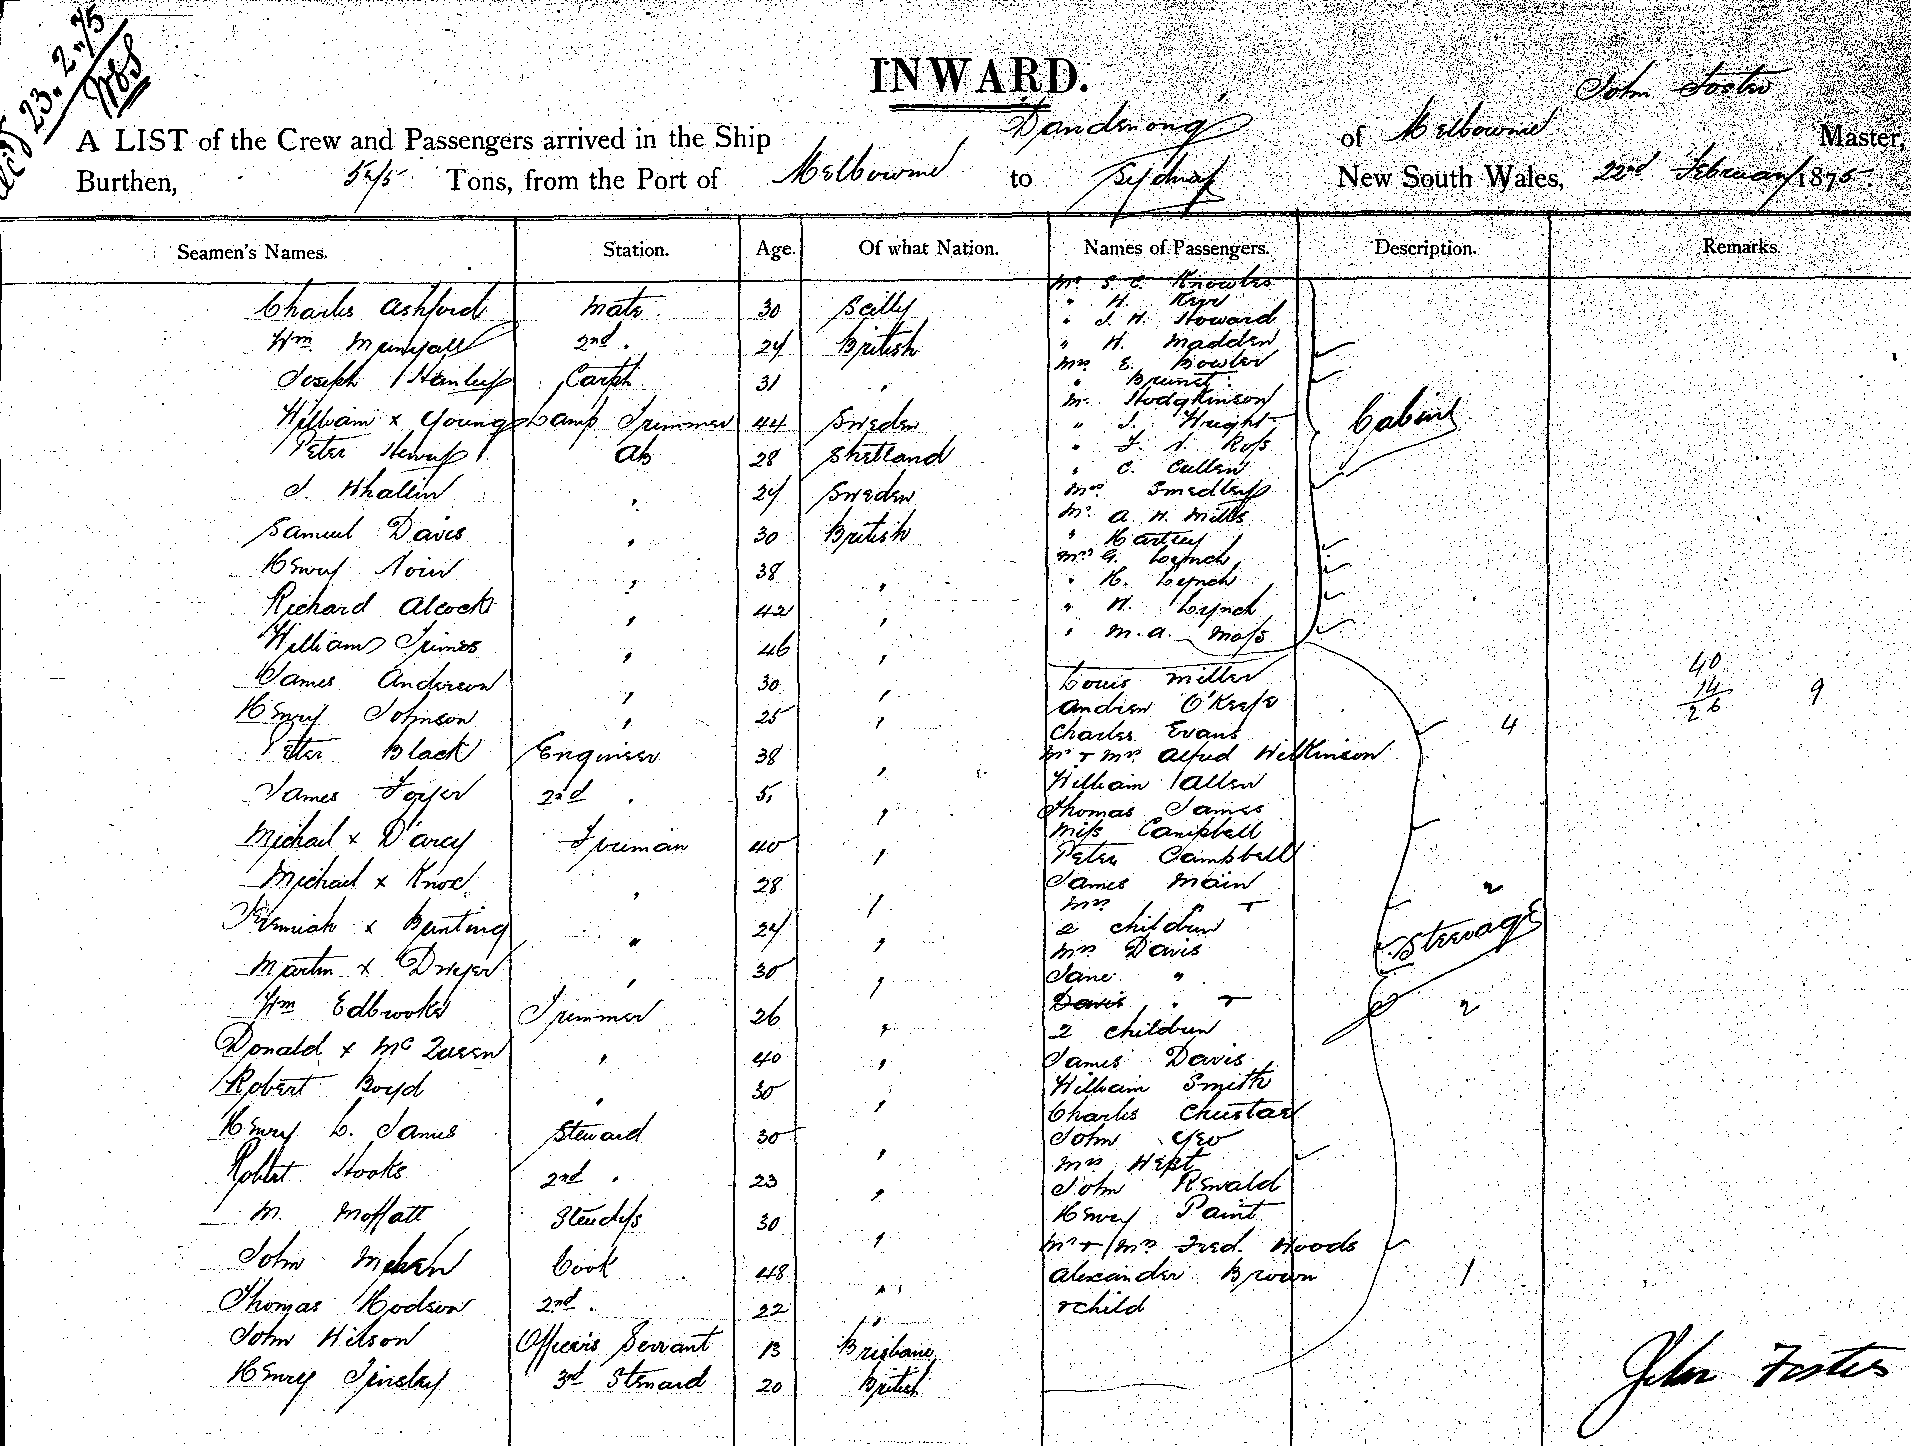 23. 2. 75
INWARD.
John Foster
A LIST of the Crew and Passengers arrived in the Ship Dandenong of Melbourne Master,
Burthen, Tons, from the Port of Melbourne to Sydney New South Wales, 22nd February 1875
Seamen's Names. Station. Age. Of what Nation. Names of Passengers. Description. Remarks.
Mr S. C. Knowles
Charles Ashford Mate 30 Scilly " H.
" J. H. Howard
Wm 2nd " 24 British " H. Madden
Mrs E. Bowler
Joseph Hanley Carptr 31 " "
Mr Hodgkinson
William x Young Lamp Trimmer 44 Sweden " J. Wright Cabin
Peter Ab 28 Shetland " Ross
" C. Cullen
J. Whallin " 24 Sweden Mrs Smedley
Mr A. H. Mills
Samuel Davis " 30 British " Hartley
Mrs G. Lynch
Henry " 38 " " H. Lynch
Richard Alcock " 42 " " H. Lynch
William " 46 " " M. A. Moss
James Anderson " 30 " Louis Miller
40
14
26
9
Henry Johnson " 25 " Andrew O'Keefe
Charles Evans 4
Peter Black Engineer 38 " Mr & Mrs Alfred Wilkinson
William Allen
James 2nd " 51 " Thomas James
Miss Campbell
Michael x D'arcy Fireman 40 " Peter Campbell
Michael x Knox " 28 " James Main
Mrs " & 2
Jeremiah x Bunting " 24 " 2 children
Mrs Davis Steerage
Martin x Dwyer " 30 " Jane "
Wm Edbrooke Trimmer 26 " Davis " & 2
2 children
Donald x McQueen " 40 " James Davis
Robert Boyd " 30 " William Smith
Charles
Henry L. James Steward 30 " John
Mrs West
Robert Hooks 2nd " 23 " John Rewald
M. Moffatt Stewdss 30 " Henry Paint
Mr & Mrs Fred. Woods
John Cook 48 " Alexander Brown 1
Thomas Hodson 2nd " 22 " & child
John Wilson Officers Servant 13 Brisbane
Henry Tinsley 3rd Steward 20 British
John Foster